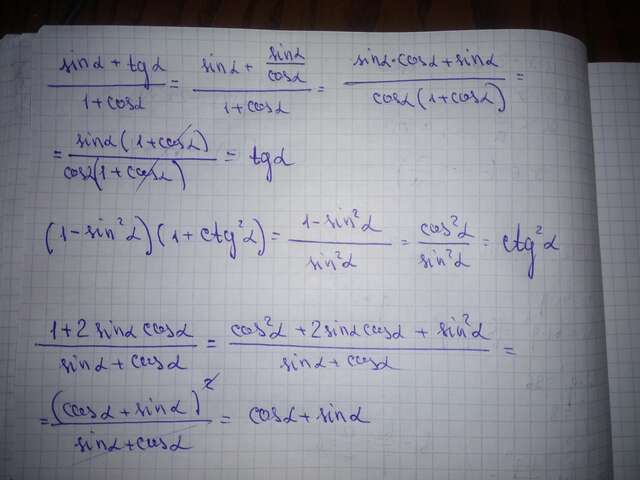 (sinα + tgα)/(1 + cosα) = (sinα + sinα/cosα)/(1 + cosα) = (sinα·cosα + sinα)/(cosα(1 + cosα)) =
= sinα(1 + cosα)/(cosα(1 + cosα)) = tgα
(1 - sin²α)(1 + ctg²α) = (1 - sin²α)/(sin²α) = cos²α/sin²α = ctg²α
(1 + 2 sinα cosα)/(sinα + cosα) = (cos²α + 2sinα cosα + sin²α)/(sinα + cosα) =
= (cosα + sinα)²/(sinα + cosα) = cosα + sinα